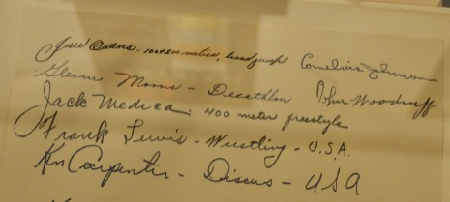 Jesse Owens - 100 + 200 metres, broad jump Cornelius Johnson
Glenn Morris - Decathlon John Woodruff
Jack Medica: 400 meter freestyle
Frank Lewis - Wrestling - U.S.A.
Ken Carpenter - Discus - USA